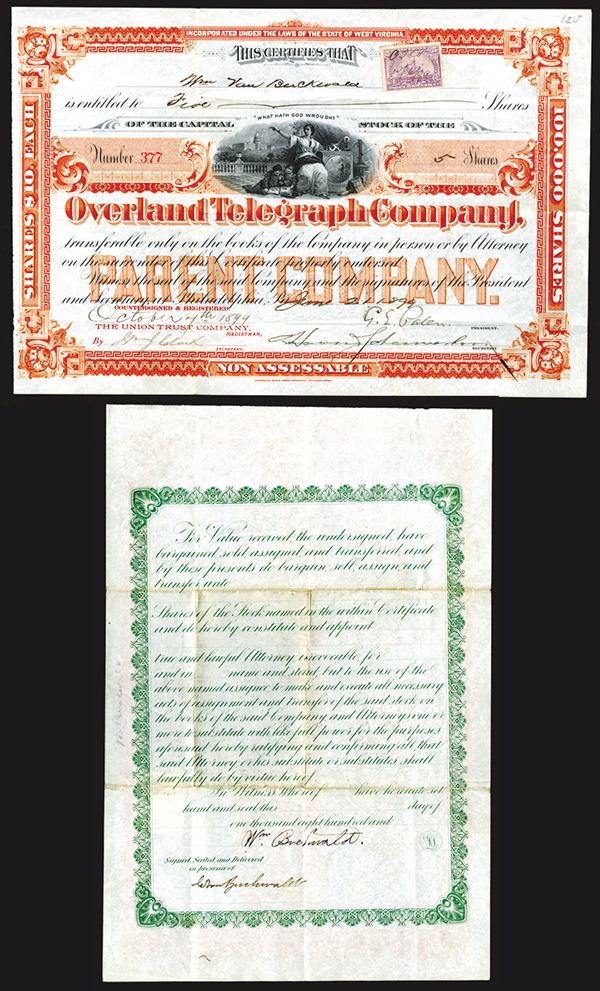 125
INCORPORATED UNDER THE LAWS OF THE STATE OF WEST VIRGINIA
THIS CERTIFIES THAT
Wm Van Buckwald
is entitled to Five Shares
"WHAT HATH GOD WROUGHT"
OF THE CAPITAL STOCK OF THE
Number 377 5 Shares
SHARES $10. EACH
100,000 SHARES
Overland Telegraph Company,
transferable only on the books of the Company in person or by Attorney
on the surrender of this Certificate properly endorsed.
PARENT COMPANY.
Witness the seal of the said Company and the signatures of the President
and Secretary, at Philadelphia, Pa. 1899
COUNTERSIGNED & REGISTERED
October 4th 1899
THE UNION TRUST COMPANY,
REGISTRAR,
G. E. Palen
PRESIDENT.
By Clark
SECRETARY.
SECRETARY.
NON ASSESSABLE
For Value received, the undersigned, have
bargained, sold, assigned, and transferred, and
by these presents do bargain, sell, assign, and
transfer, unto
Shares of the Stock named in the within Certificate
and do hereby constitute and appoint
true and lawful Attorney, irrevocable, for
and in name and stead, but to the use of the
above named assignee, to make and execute all necessary
acts of assignment and transfer of the said stock on
the books of the said Company and Attorneys one or
more to substitute with like full power for the purposes
aforesaid, hereby ratifying and confirming all that
said Attorney or his substitute or substitutes shall
lawfully do by virtue hereof.
In Witness Whereof have hereunto set
hand and seal, this day of
one thousand eight hundred and
Wm Buchwaldt.
Signed, Sealed and Delivered
in presence of
Buchwaldt